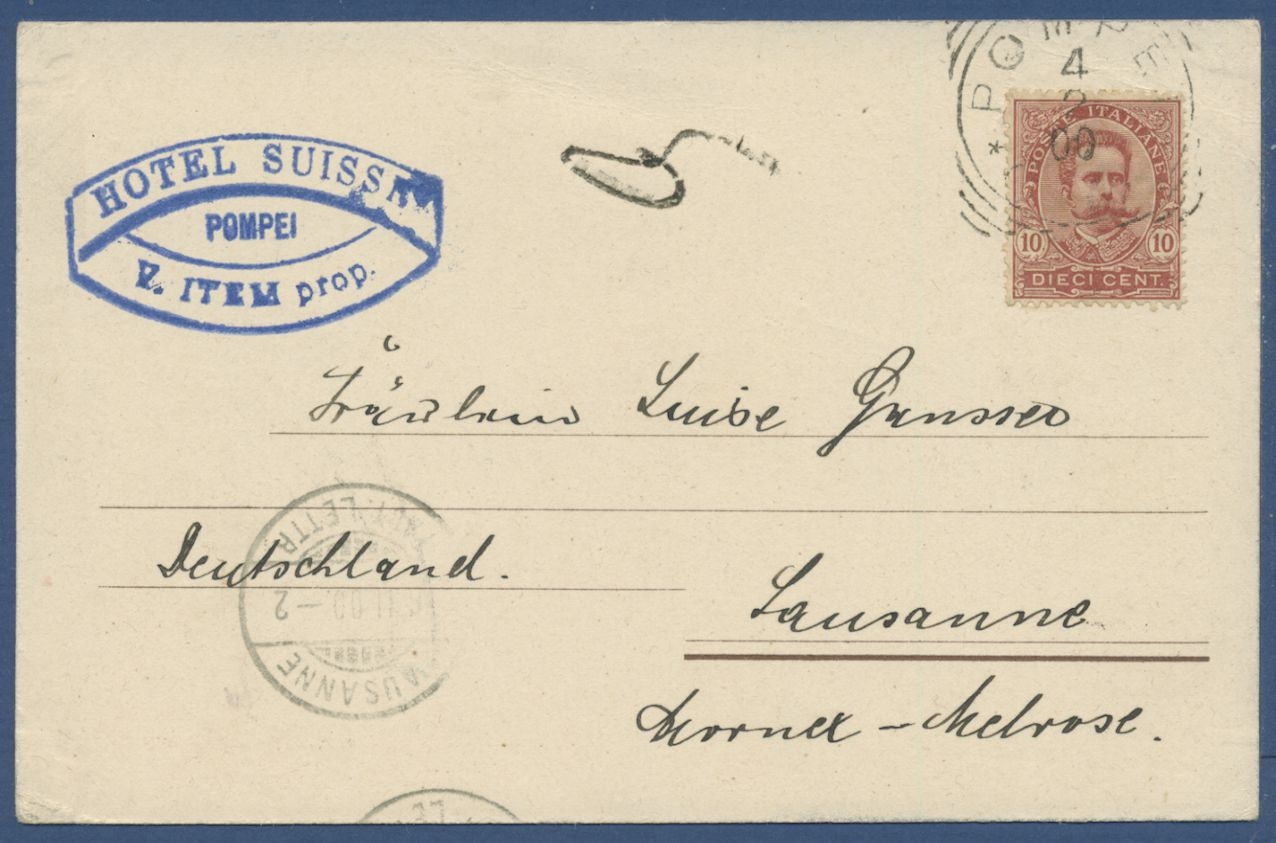 HOTEL SUISSE
POMPEI
V. ITEM prop.
POMPEI
4
2
00
POSTE ITALIANE
10 10
DIECI CENT.
Fräulein Luise Gansser
Deutschland.
Lausanne
Mornex – Melrose.
LETTR
II.00.–2
LAUSANNE